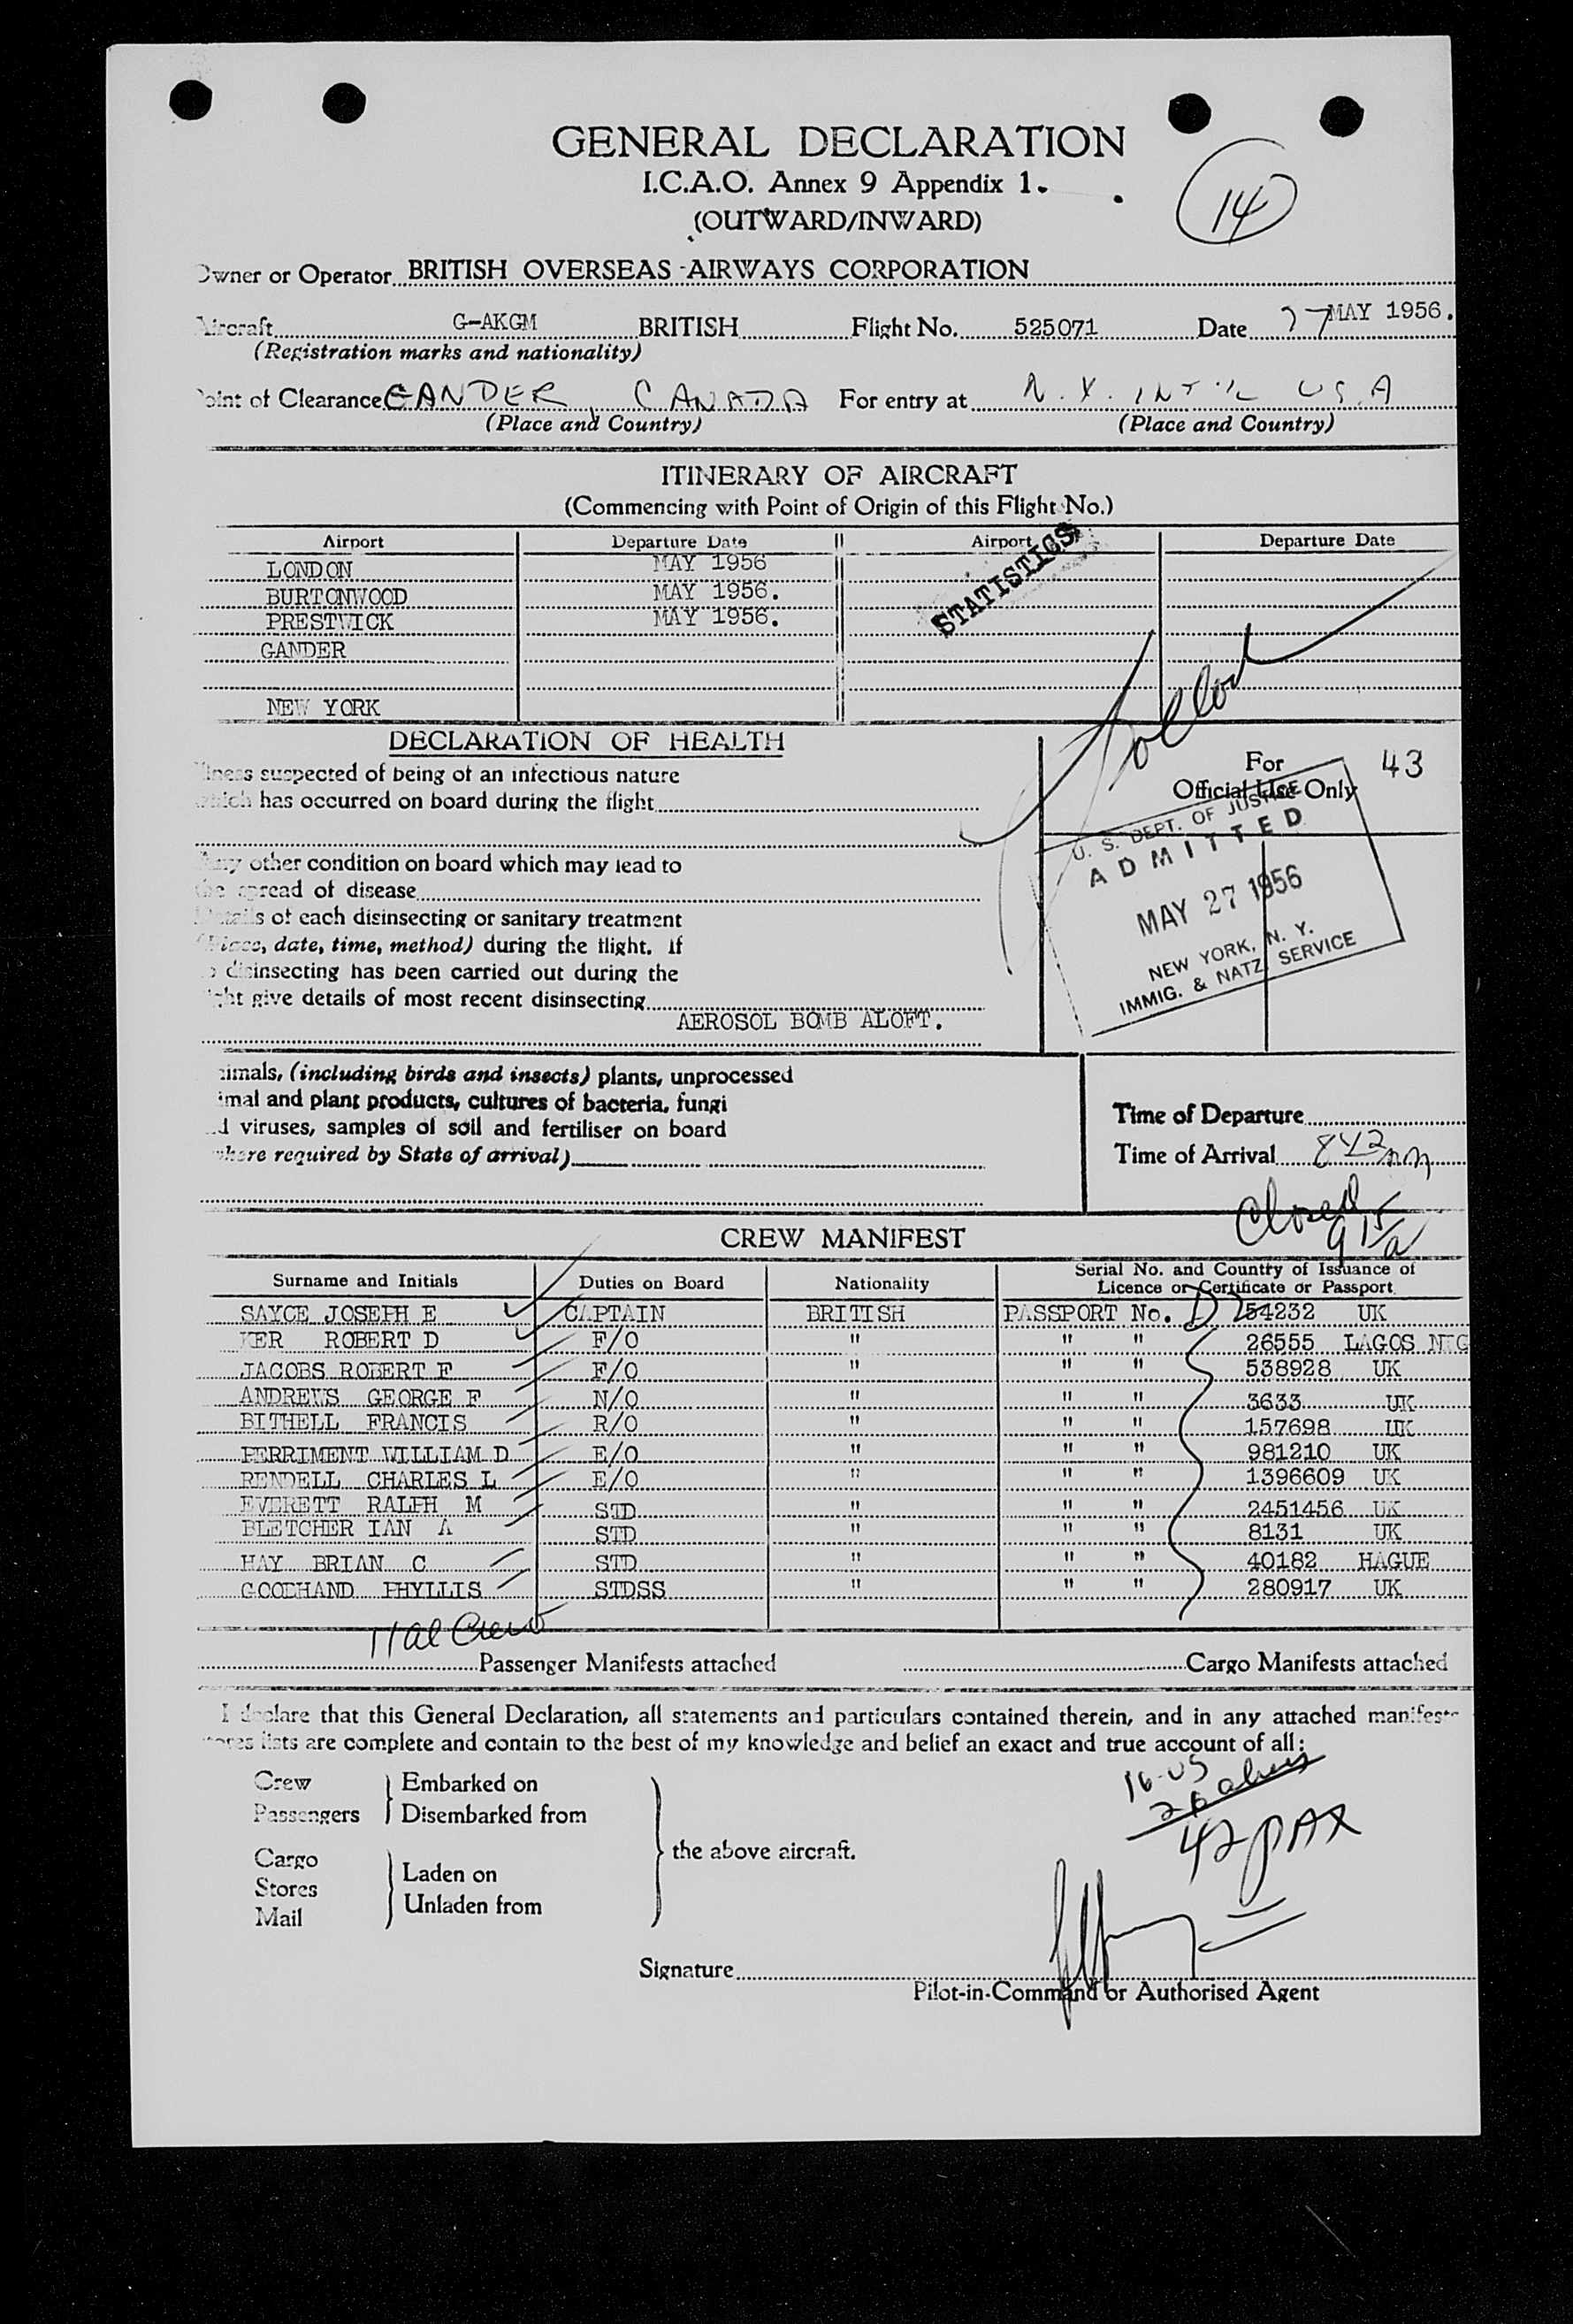 GENERAL DECLARATION
I.C.A.O. Annex 9 Appendix 1.
(OUTWARD/INWARD)
14
Owner or Operator BRITISH OVERSEAS AIRWAYS CORPORATION
Aircraft G-AKGM BRITISH Flight No. 525071 Date 27 MAY 1956.
(Registration marks and nationality)
Point of Clearance GANDER, CANADA For entry at N.Y. INT'L USA
(Place and Country) (Place and Country)
ITINERARY OF AIRCRAFT
(Commencing with Point of Origin of this Flight No.)
Airport Departure Date Airport Departure Date
STATISTICS
LONDON MAY 1956
BURTONWOOD MAY 1956.
PRESTWICK MAY 1956.
GANDER
NEW YORK
DECLARATION OF HEALTH
Illness suspected of being of an infectious nature
which has occurred on board during the flight
Any other condition on board which may lead to
the spread of disease
Details of each disinsecting or sanitary treatment
(Place, date, time, method) during the flight. If
no disinsecting has been carried out during the
flight give details of most recent disinsecting
AEROSOL BOMB ALOFT.
For
Official Use Only
43
U. S. DEPT. OF JUSTICE
ADMITTED
MAY 27 1956
NEW YORK, N. Y.
IMMIG. & NATZ. SERVICE
nimals, (including birds and insects) plants, unprocessed
imal and plant products, cultures of bacteria, fungi
d viruses, samples of soil and fertiliser on board
where required by State of arrival)
Time of Departure
Time of Arrival 842 am
Closed
915 a
CREW MANIFEST
Surname and Initials Duties on Board Nationality Serial No. and Country of Issuance of Licence or Certificate or Passport
SAYCE JOSEPH E CAPTAIN BRITISH PASSPORT No. 54232 UK
KER ROBERT D F/O " " " 26555 LAGOS NIG
JACOBS ROBERT F F/O " " " 538928 UK
ANDREWS GEORGE F N/O " " " 3633 UK
BITHELL FRANCIS R/O " " " 157698 UK
PERRIMENT WILLIAM D E/O " " " 981210 UK
RENDELL CHARLES L E/O " " " 1396609 UK
EVERETT RALPH M STD " " " 2451456 UK
BLETCHER IAN A STD " " " 8131 UK
HAY BRIAN C STD " " " 40182 HAGUE
GOODHAND PHYLLIS STDSS " " " 280917 UK
11 al Crew
Passenger Manifests attached Cargo Manifests attached
I declare that this General Declaration, all statements and particulars contained therein, and in any attached manifests
stores lists are complete and contain to the best of my knowledge and belief an exact and true account of all:
Crew
Passengers
Embarked on
Disembarked from
Cargo
Stores
Mail
Laden on
Unladen from
the above aircraft.
16 US
26 aliens
42 PAX
Signature
Pilot-in-Command or Authorised Agent